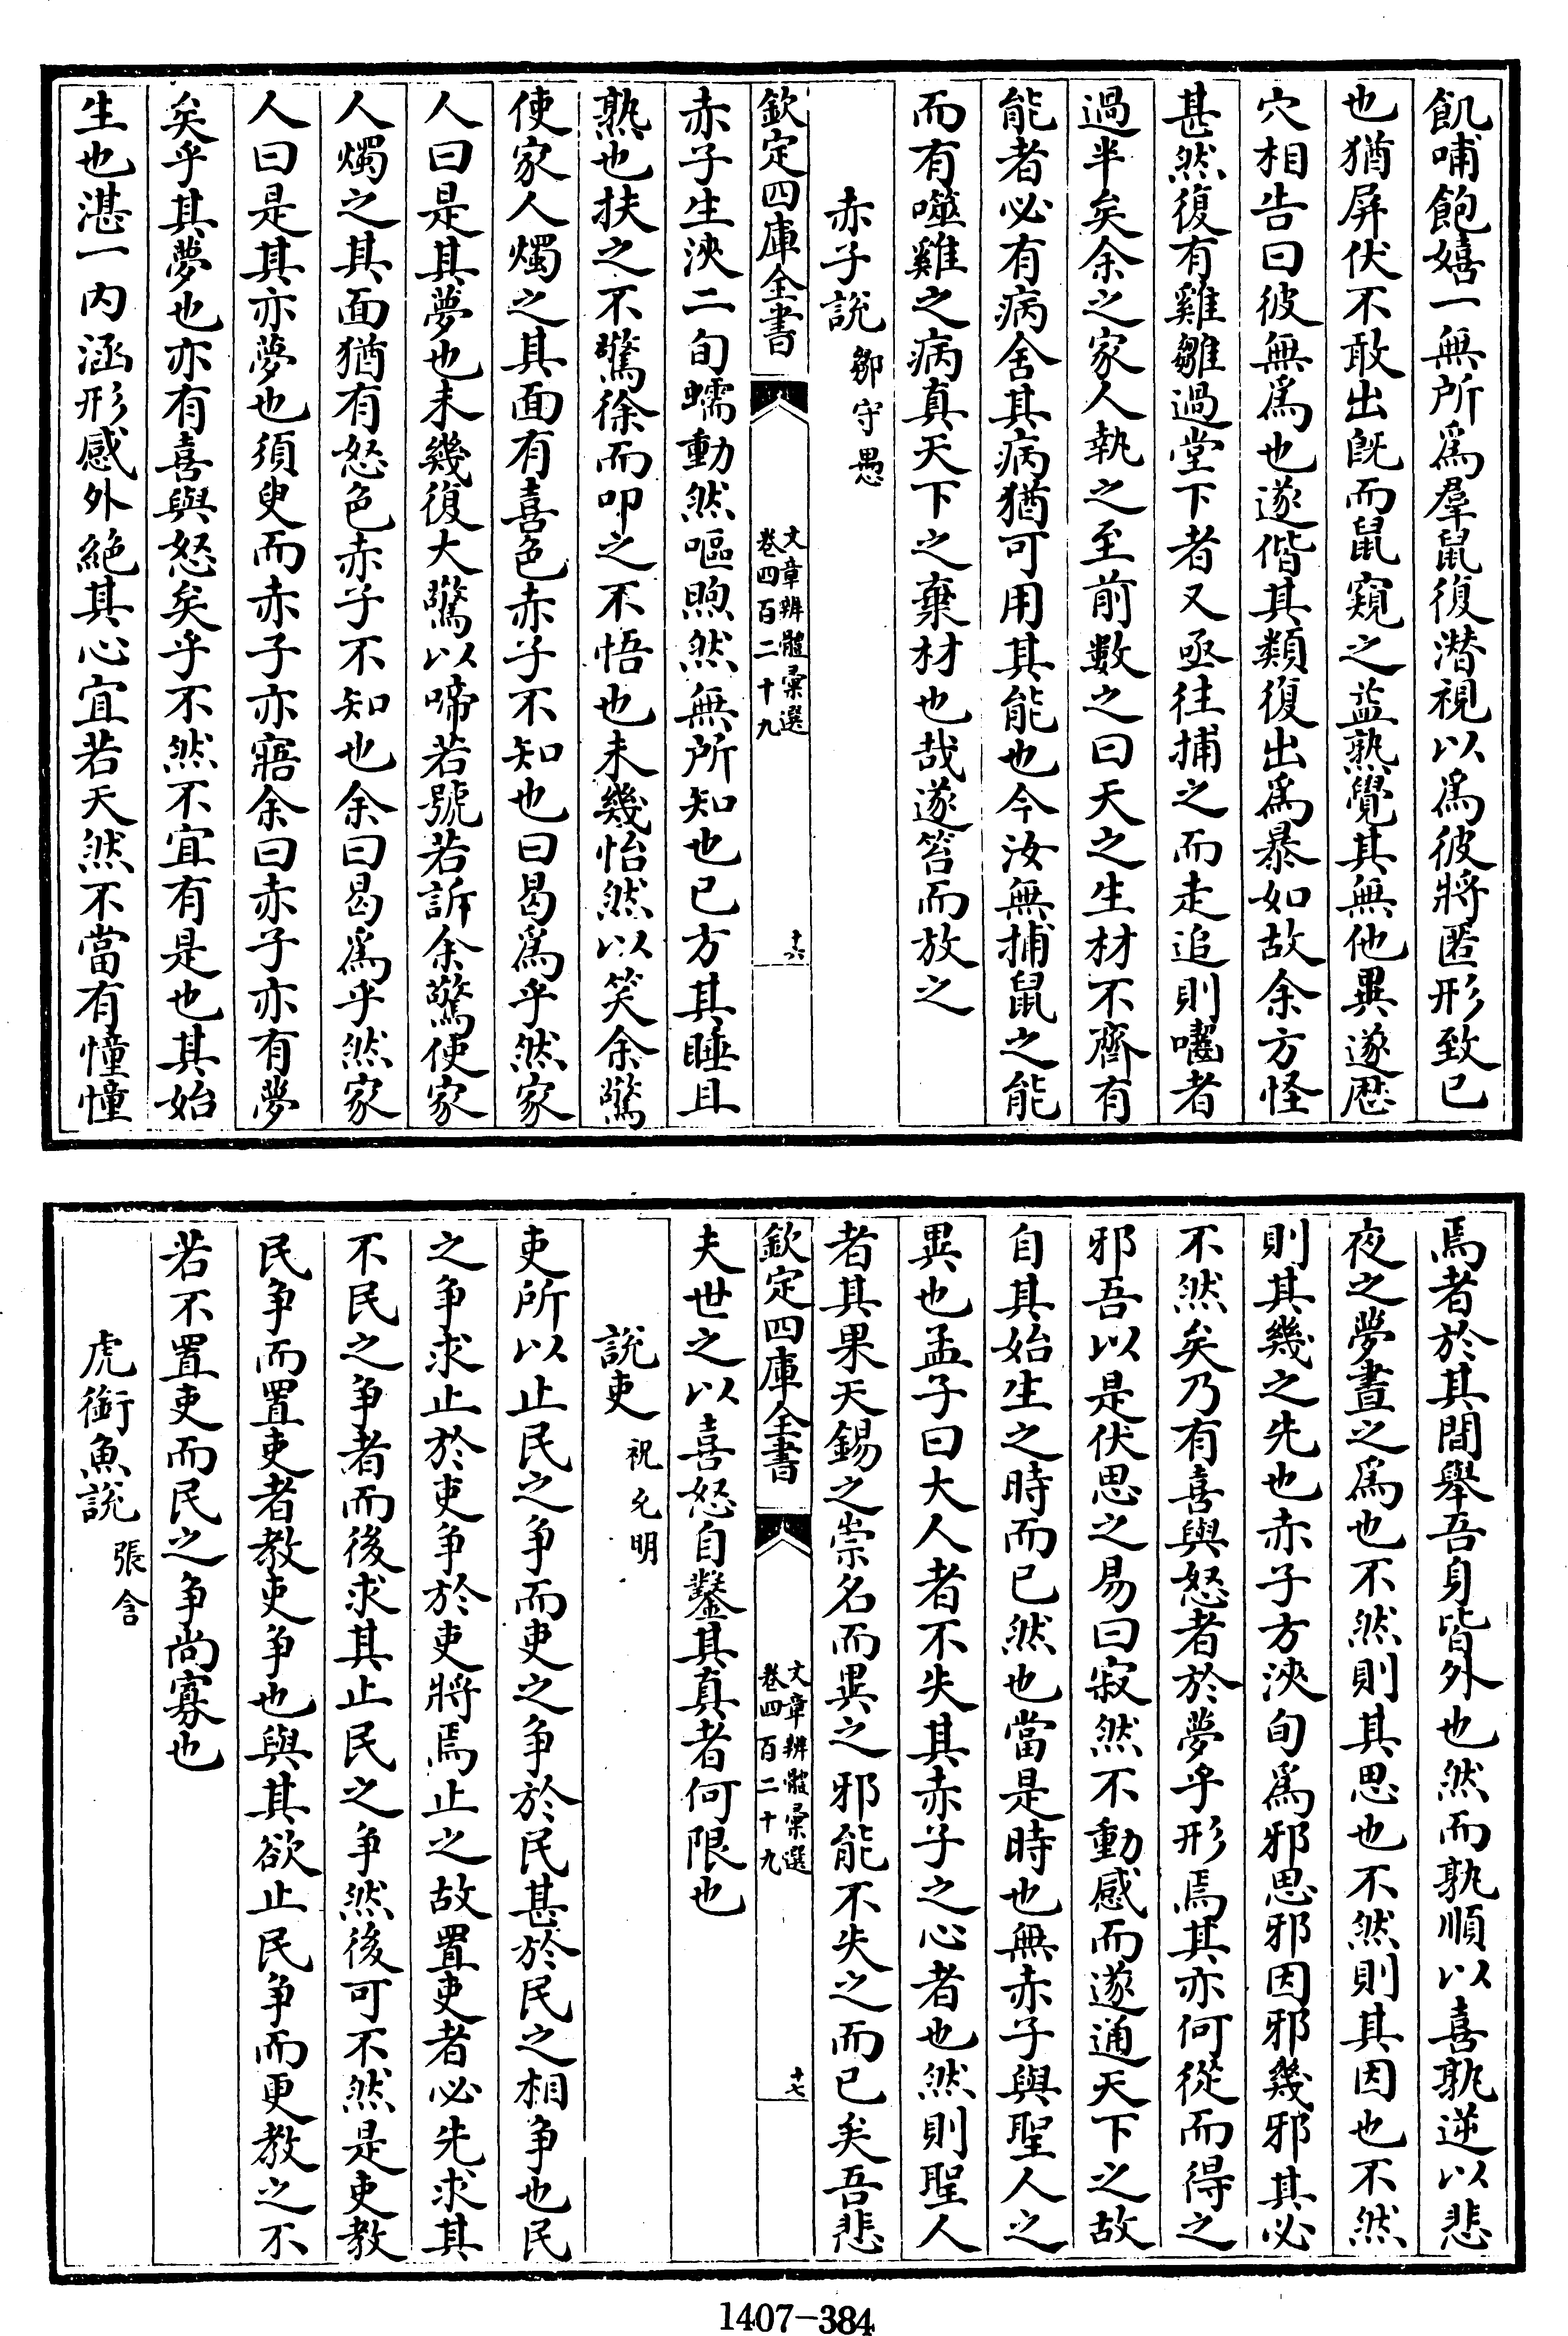 飢哺飽嬉一無所為羣鼠復潛視以為彼將匿形致已
也猶屏伏不敢出旣而鼠窺之益熟覺其無他異遂歴
穴相告曰彼無為也遂偕其類復出為暴如故余方怪
甚然復有雞雛過堂下者又亟往捕之而走追則囓者
過半矣余之家人執之至前數之曰天之生材不齊有
能者必有病舍其病猶可用其能也今汝無捕鼠之能
而有噬雞之病真天下之棄材也哉遂笞而放之
赤子說 鄒守愚
欽定四庫全書 文章辨體彚選 卷四百二十九 十六
赤子生浹二旬蠕動然嘔煦然無所知也已方其睡且
熟也扶之不驚徐而叩之不悟也未幾怡然以笑余驚
使家人燭之其面有喜色赤子不知也曰曷為乎然家
人曰是其夢也未幾復大驚以啼若號若訴余驚使家
人燭之其面猶有怒色赤子不知也余曰曷為乎然家
人曰是其亦夢也須臾而赤子亦寤余曰赤子亦有夢
矣乎其夢也亦有喜與怒矣乎不然不宜有是也其始
生也湛一内涵形感外絶其心宜若天然不當有憧憧
焉者於其間舉吾身皆外也然而孰順以喜孰逆以悲
夜之夢晝之為也不然則其思也不然則其因也不然
則其幾之先也赤子方浹旬為邪思邪因邪幾邪其必
不然矣乃有喜與怒者於夢乎形焉其亦何從而得之
邪吾以是伏思之易曰寂然不動感而遂通天下之故
自其始生之時而已然也當是時也無赤子與聖人之
異也孟子曰大人者不失其赤子之心者也然則聖人
者其果天錫之崇名而異之邪能不失之而已矣吾悲
欽定四庫全書 文章辨體彚選 卷四百二十九 十七
夫世之以喜怒自鑿其真者何限也
說吏 祝允明
吏所以止民之争而吏之争於民甚於民之相争也民
之争求止於吏争於吏將焉止之故置吏者必先求其
不民之争者而後求其止民之争然後可不然是吏教
民争而置吏者教吏争也與其欲止民争而更教之不
若不置吏而民之争尚寡也
虎銜魚說 張含
1407-384